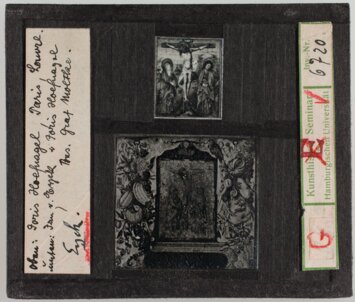 oben: Joris Hoefnagel, Paris, Louvre.
unten: Jan v. Eyck & Joris Hoefnagel
Bes. Graf Moltke.
Eyck.
Kunsthist. Seminar
Hamburgischen Universität
Inv.-Nr.
6720
G
E
V